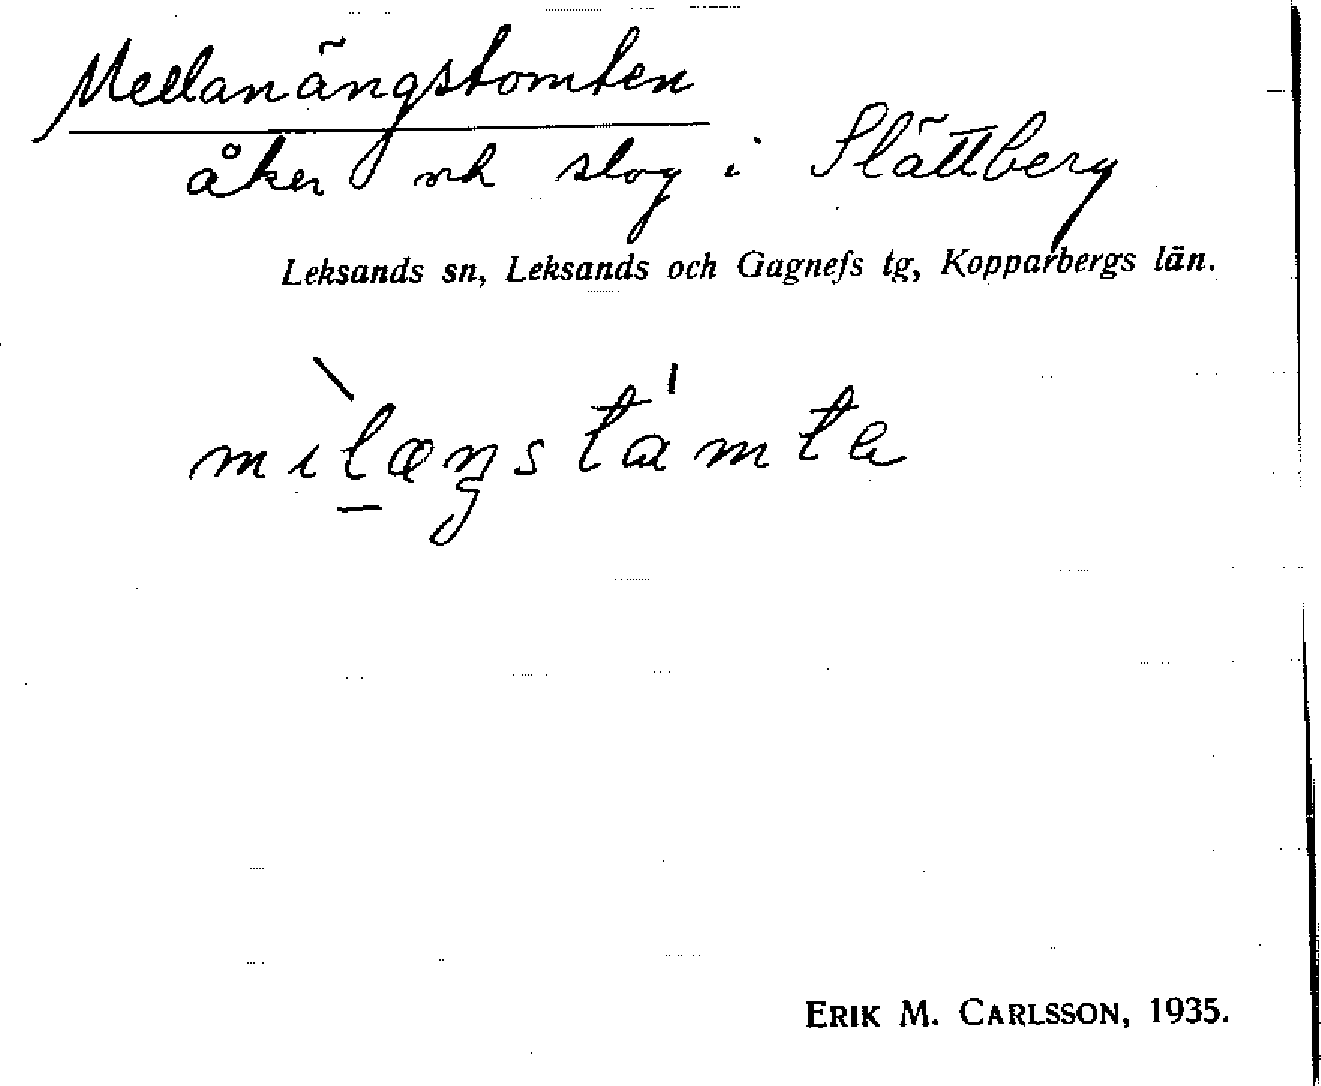 Mellanängstomten
åker och slog i Slättberg
Leksands sn, Leksands och Gagnefs tg, Kopparbergs län.
mìlæŋstámta
ERIK M. CARLSSON, 1935.